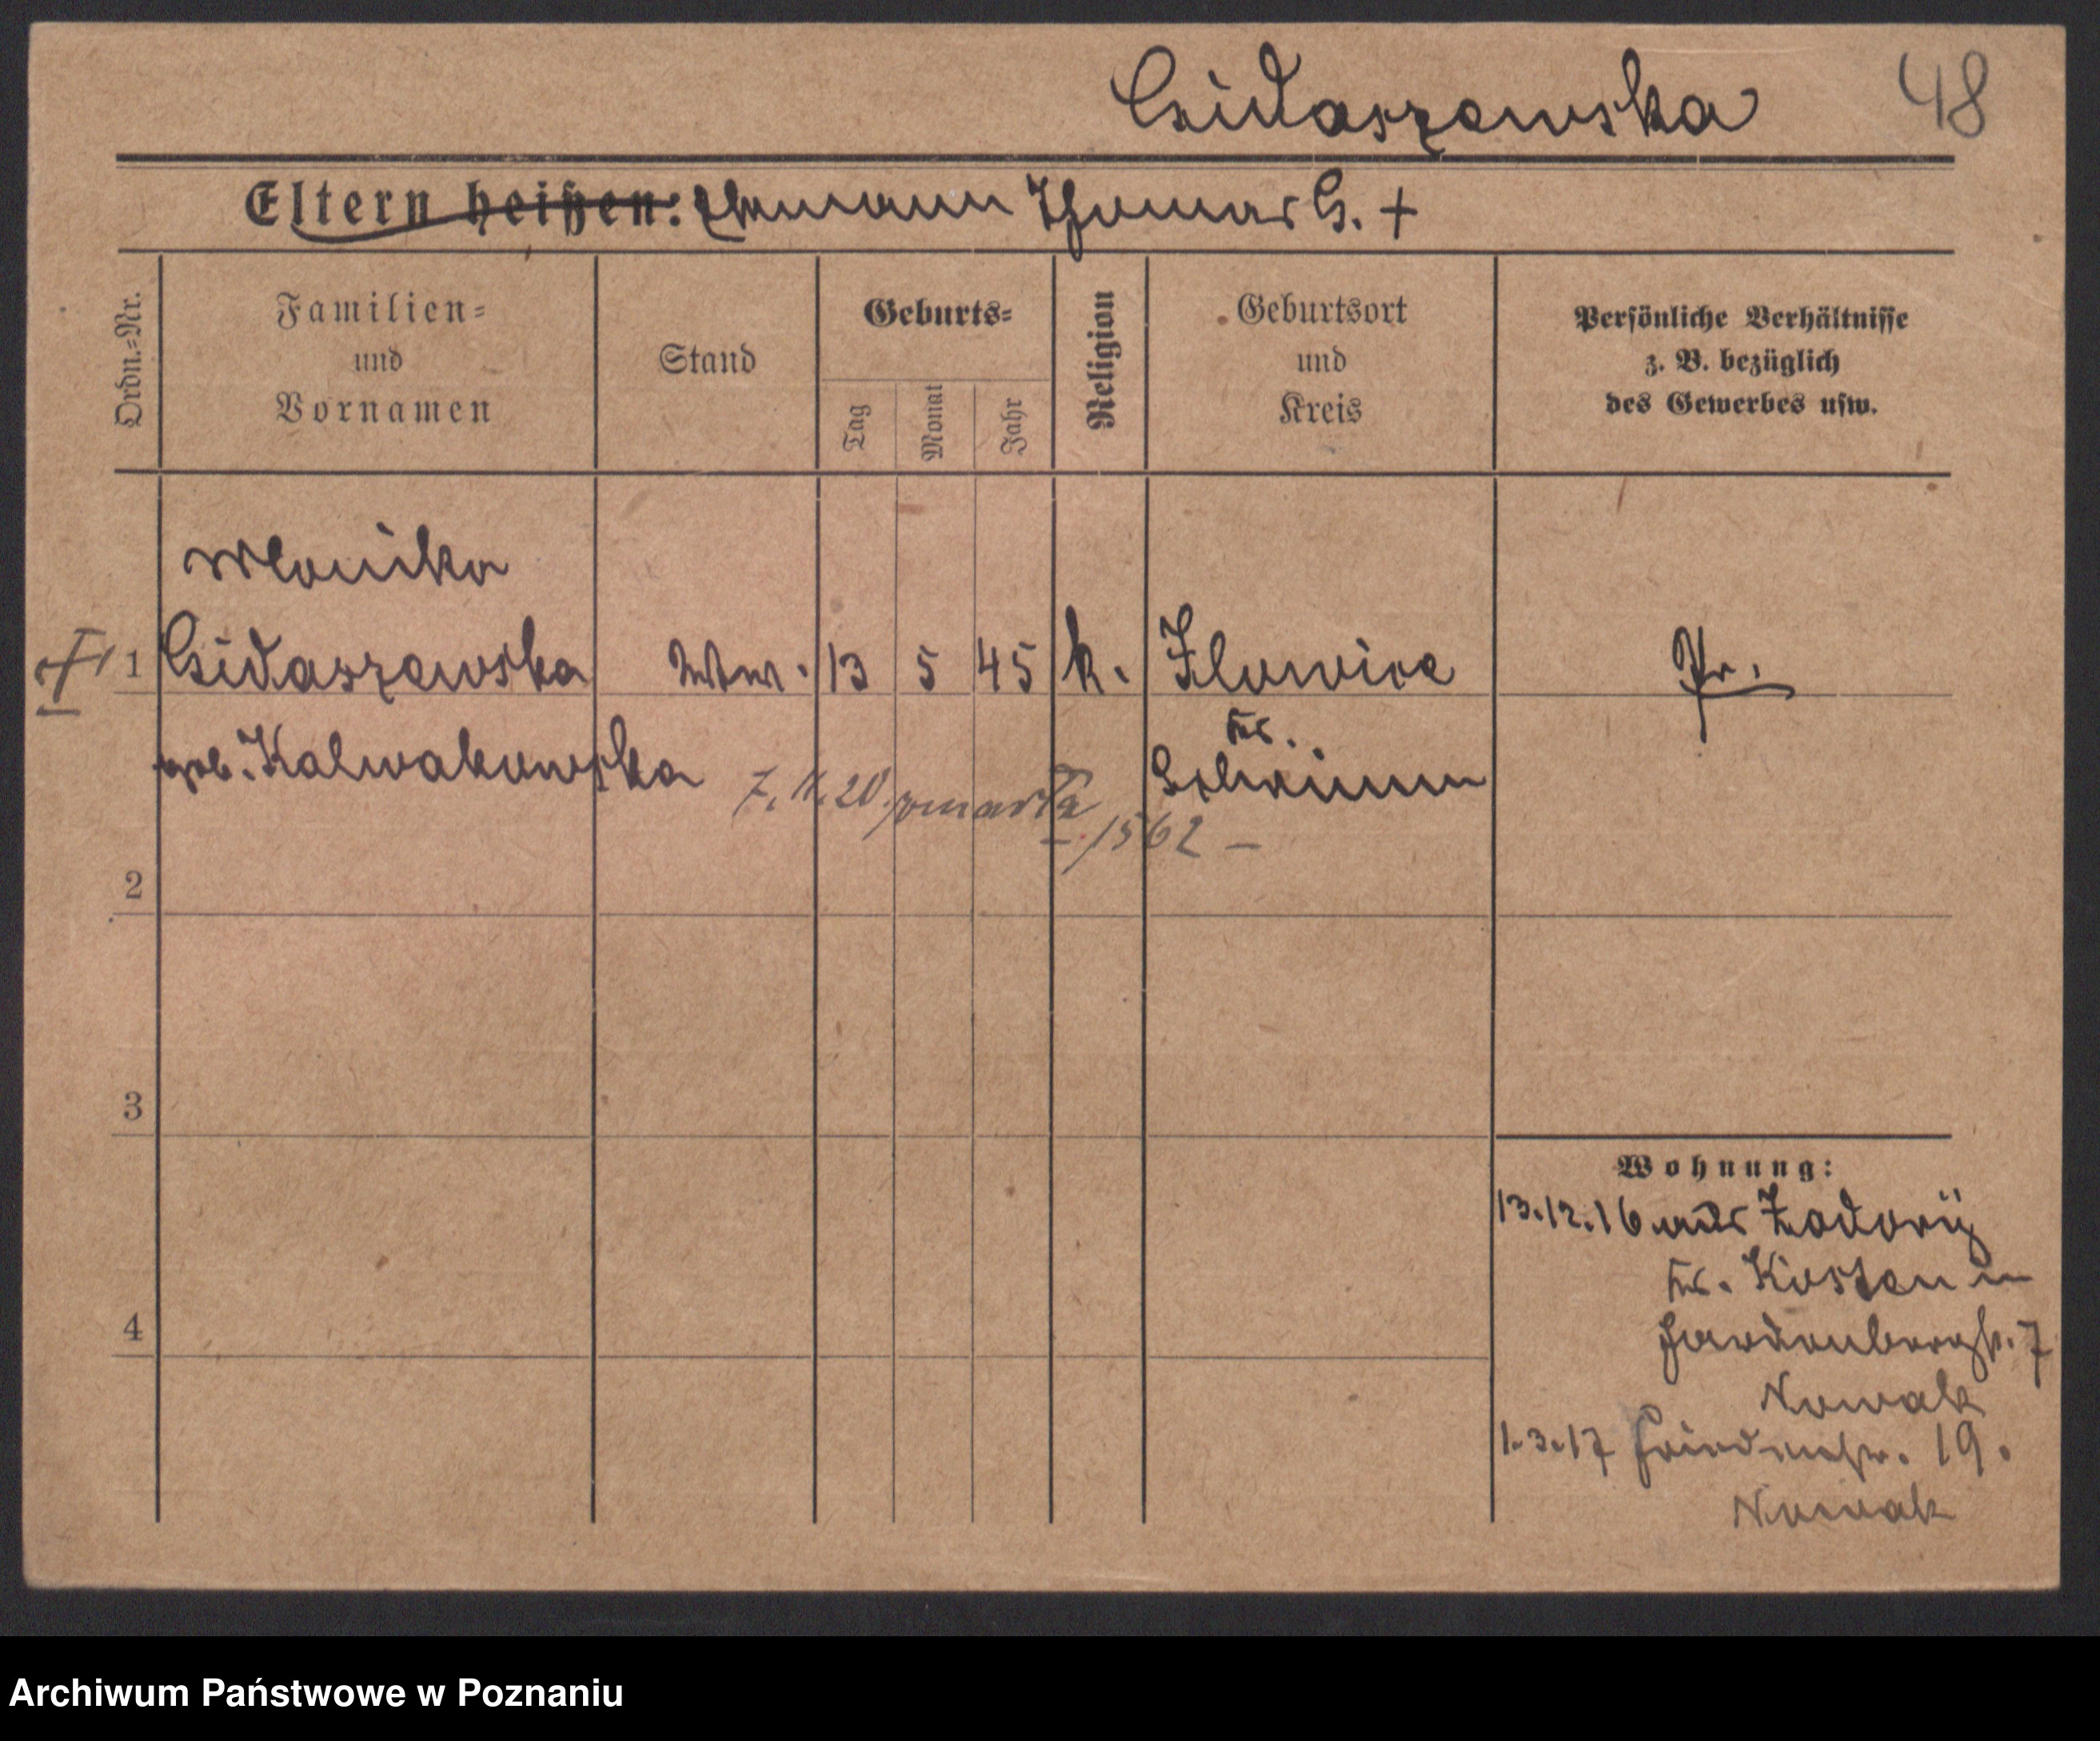 Gidaszewska 48
Eltern heißen: Ehemann Thomas G. +
Ordn.-Nr.
Familien-
und
Vornamen
Stand
Geburts-
Tag
Monat
Jahr
Religion
Geburtsort
und
Kreis
Persönliche Verhältnisse
z. B. bezüglich
des Gewerbes usw.
Monika
1 Gidaszewska Wtw. 13 5 45 k. Pr.
Kr.
Schrimm
geb. Kalwakowska
7. 11. 20. zmarła
1562 –
2
3
4
Wohnung:
13.12.16 aus Zadory
Kr. Kosten in
Hardenbergstr. 7
Nowak
1.3.17 19.
Nowak
Archiwum Państwowe w Poznaniu